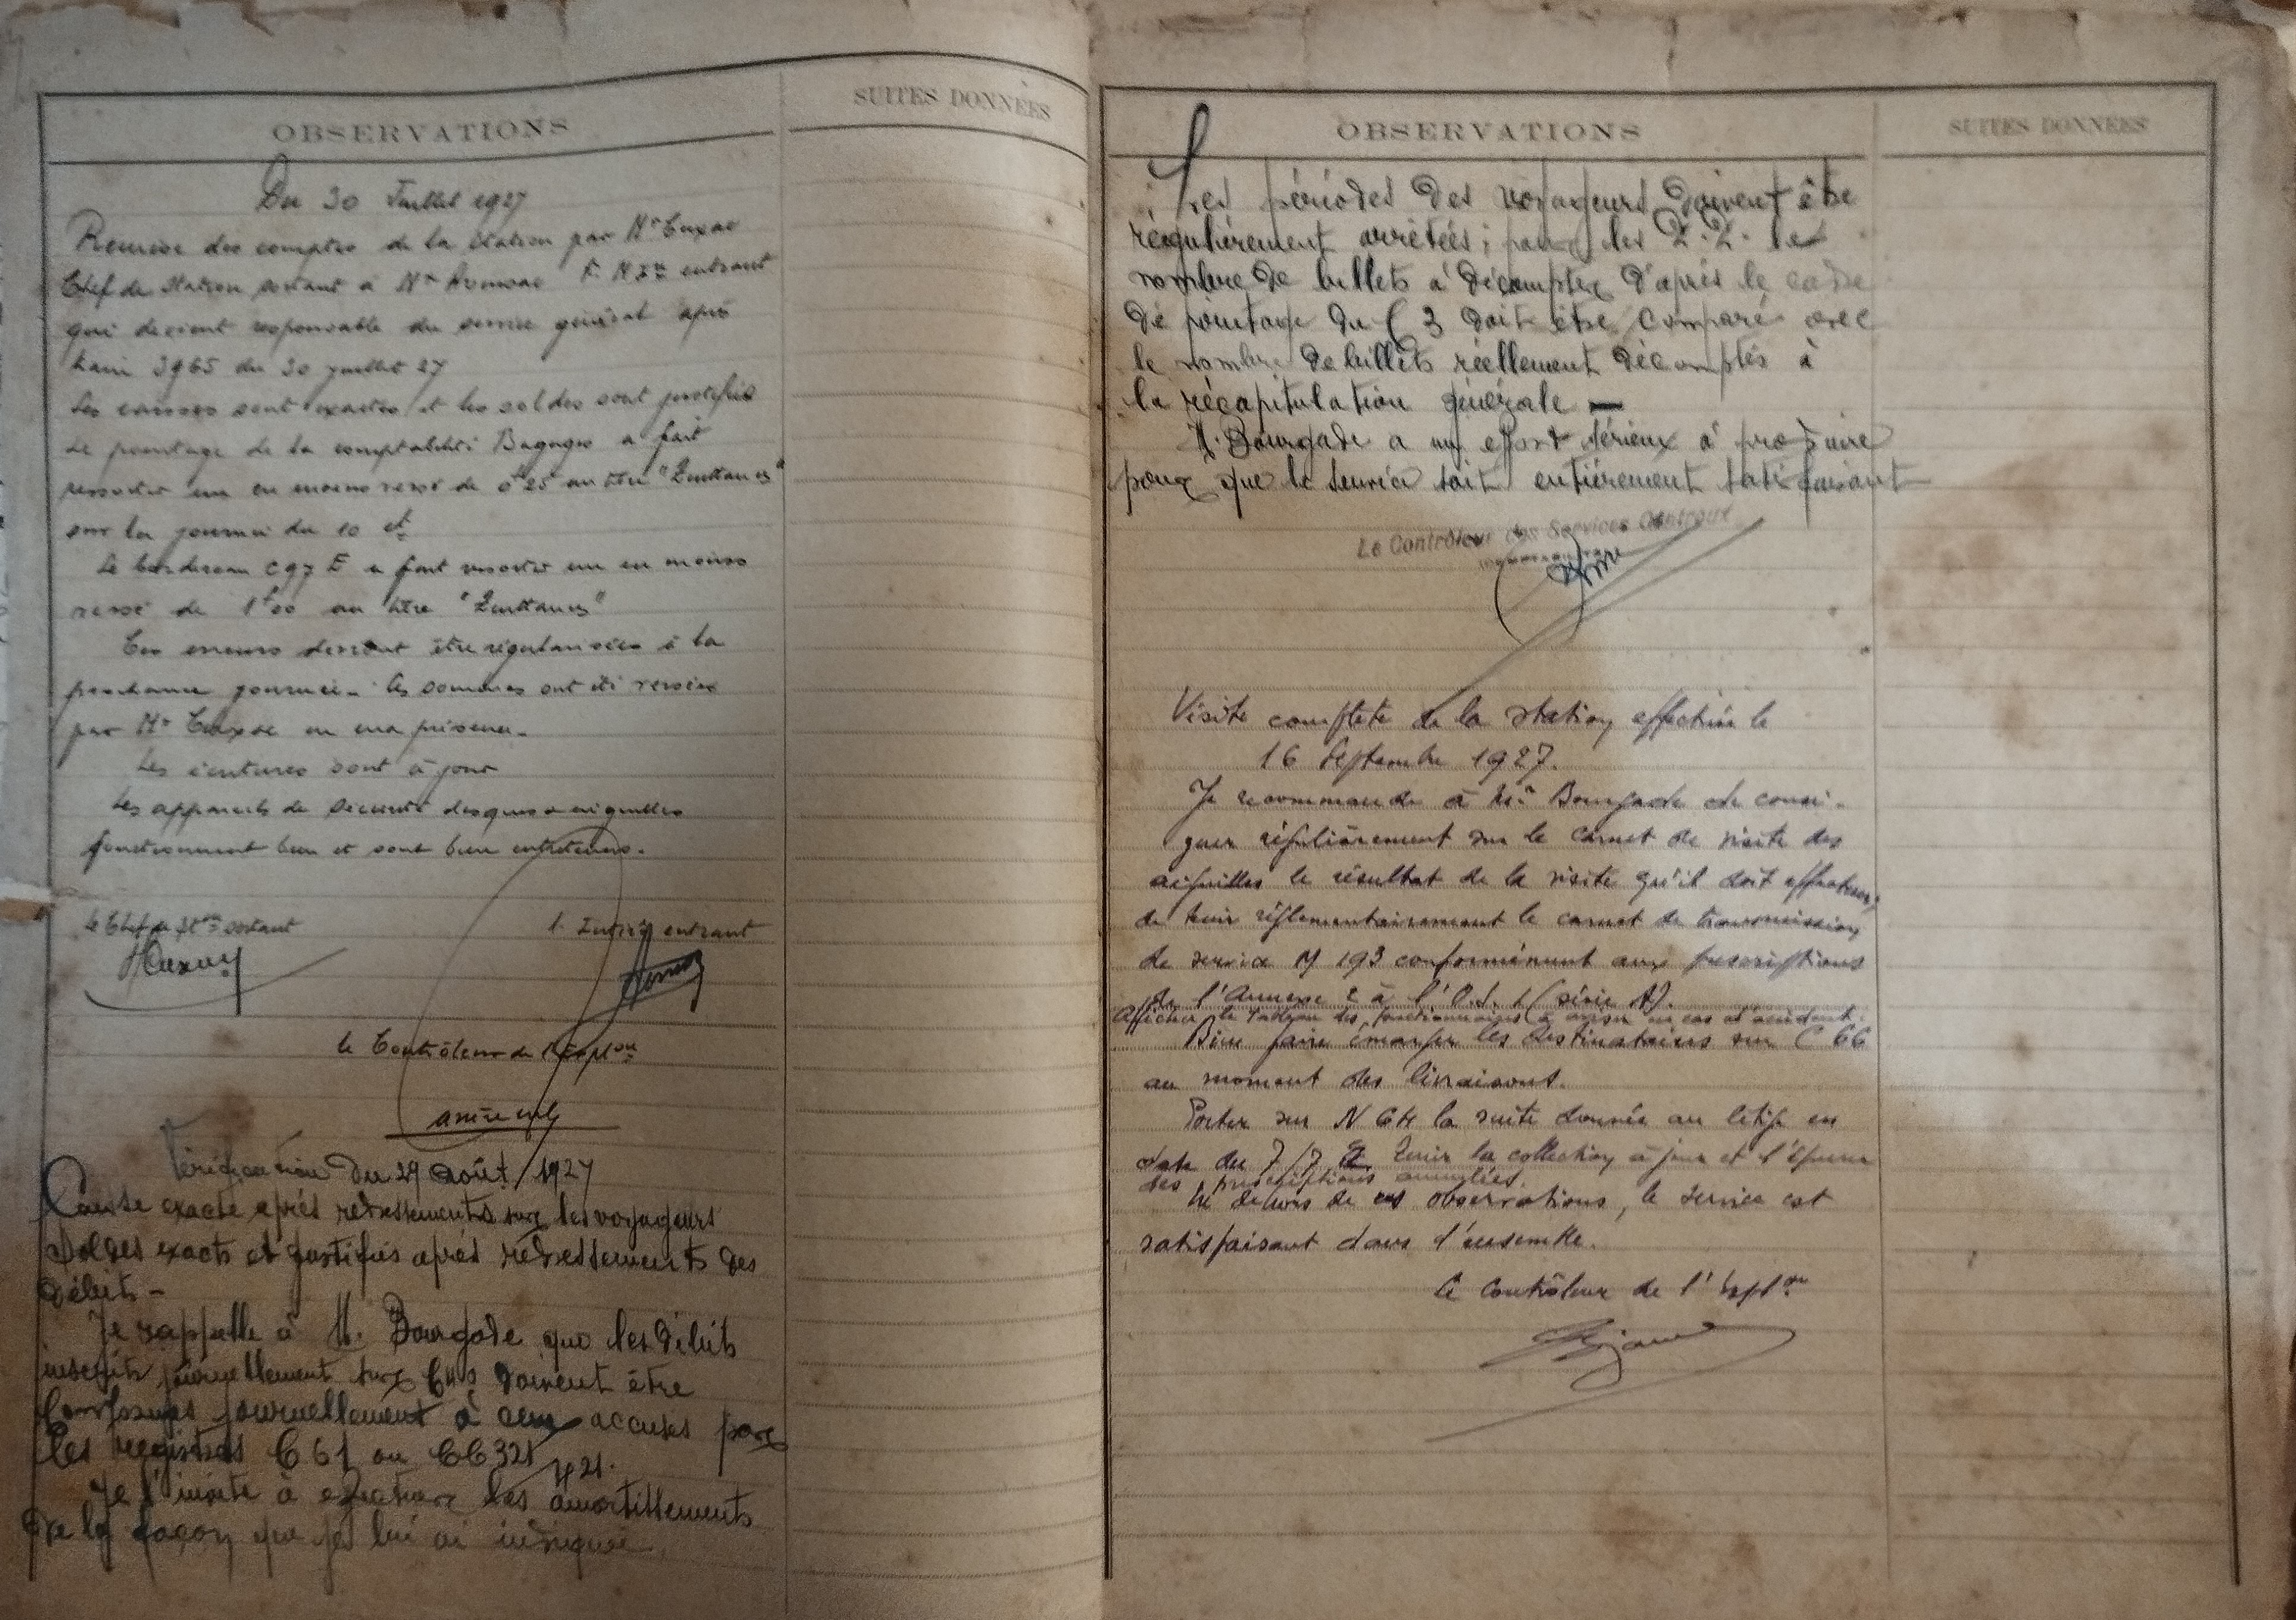 OBSERVATIONS
SUITES DONNÉES
Du 30 Juillet 1927
Remise des comptes de la station par Mr Cuxac
Chef de station sortant à Mr entrant
qui devient responsable du service général après
train 3965 du 30 juillet 27
Les caisses sont exactes et les soldes sont justifiés
Le pointage de la comptabilité Bagages a fait
ressortir un en moins versé de 0f25 au titre "Quittances"
sur la journée du 10 ct
Le bordereau C97 E a fait ressortir un en moins
versé de 1f00 au titre "Quittances"
Ces erreurs devront être régularisées à la
prochaine journée - les sommes ont été versées
par Mr Cuxac en ma présence.
Les écritures sont à jour
Les appareils de sécurité disques & aiguilles
fonctionnent bien et sont bien entretenus.
Le Chef de Ston sortant
l'Intére entrant
Cuxac
le Contrôleur de l'Exploon
Vérification du 29 août 1927
Caisse exacte après redressements sur les voyageurs
Soldes exacts et justifiés après redressements des
débits -
Je rappelle à M. Bourgade que les débits
inscrits journellement sur doivent être
journellement à ceux accusés par
les registres C 61 ou CC 321
421.
Je l'invite à effectuer les amortissements
de la façon que je lui ai indiquée.
OBSERVATIONS
SUITES DONNÉES
Les périodes des voyageurs doivent être
régulièrement arrêtées; pour les Z.Z. le
nombre de billets à décompter d'après le cadre
de pointage du C 3 doit être comparé avec
le nombre de billets réellement décomptés à
la récapitulation générale —
M. Bourgade a un effort sérieux à produire
pour que le service soit entièrement satisfaisant
Le Contrôleur des Services Centraux
Visite complète de la station effectuée le
16 Septembre 1927.
Je recommande à Mr Bourgade de consi-
gner régulièrement sur le carnet de visite des
aiguilles le résultat de la visite qu'il doit effectuer,
de tenir réglementairement le carnet de transmission
de service M 193 conformément aux prescriptions
de l'Annexe 2 à l'O.S. 1 (série A).
Afficher le tableau des fonctionnaires à aviser en cas d'accident.
Bien faire émarger les destinataires sur C 66
au moment des livraisons.
Porter sur N 64 la suite donnée au litige en
date du 7/7 Tenir la collection à jour et l'épurer
des prescriptions annulées.
En dehors de ces observations, le service est
satisfaisant dans l'ensemble.
Le Contrôleur de l'Explon